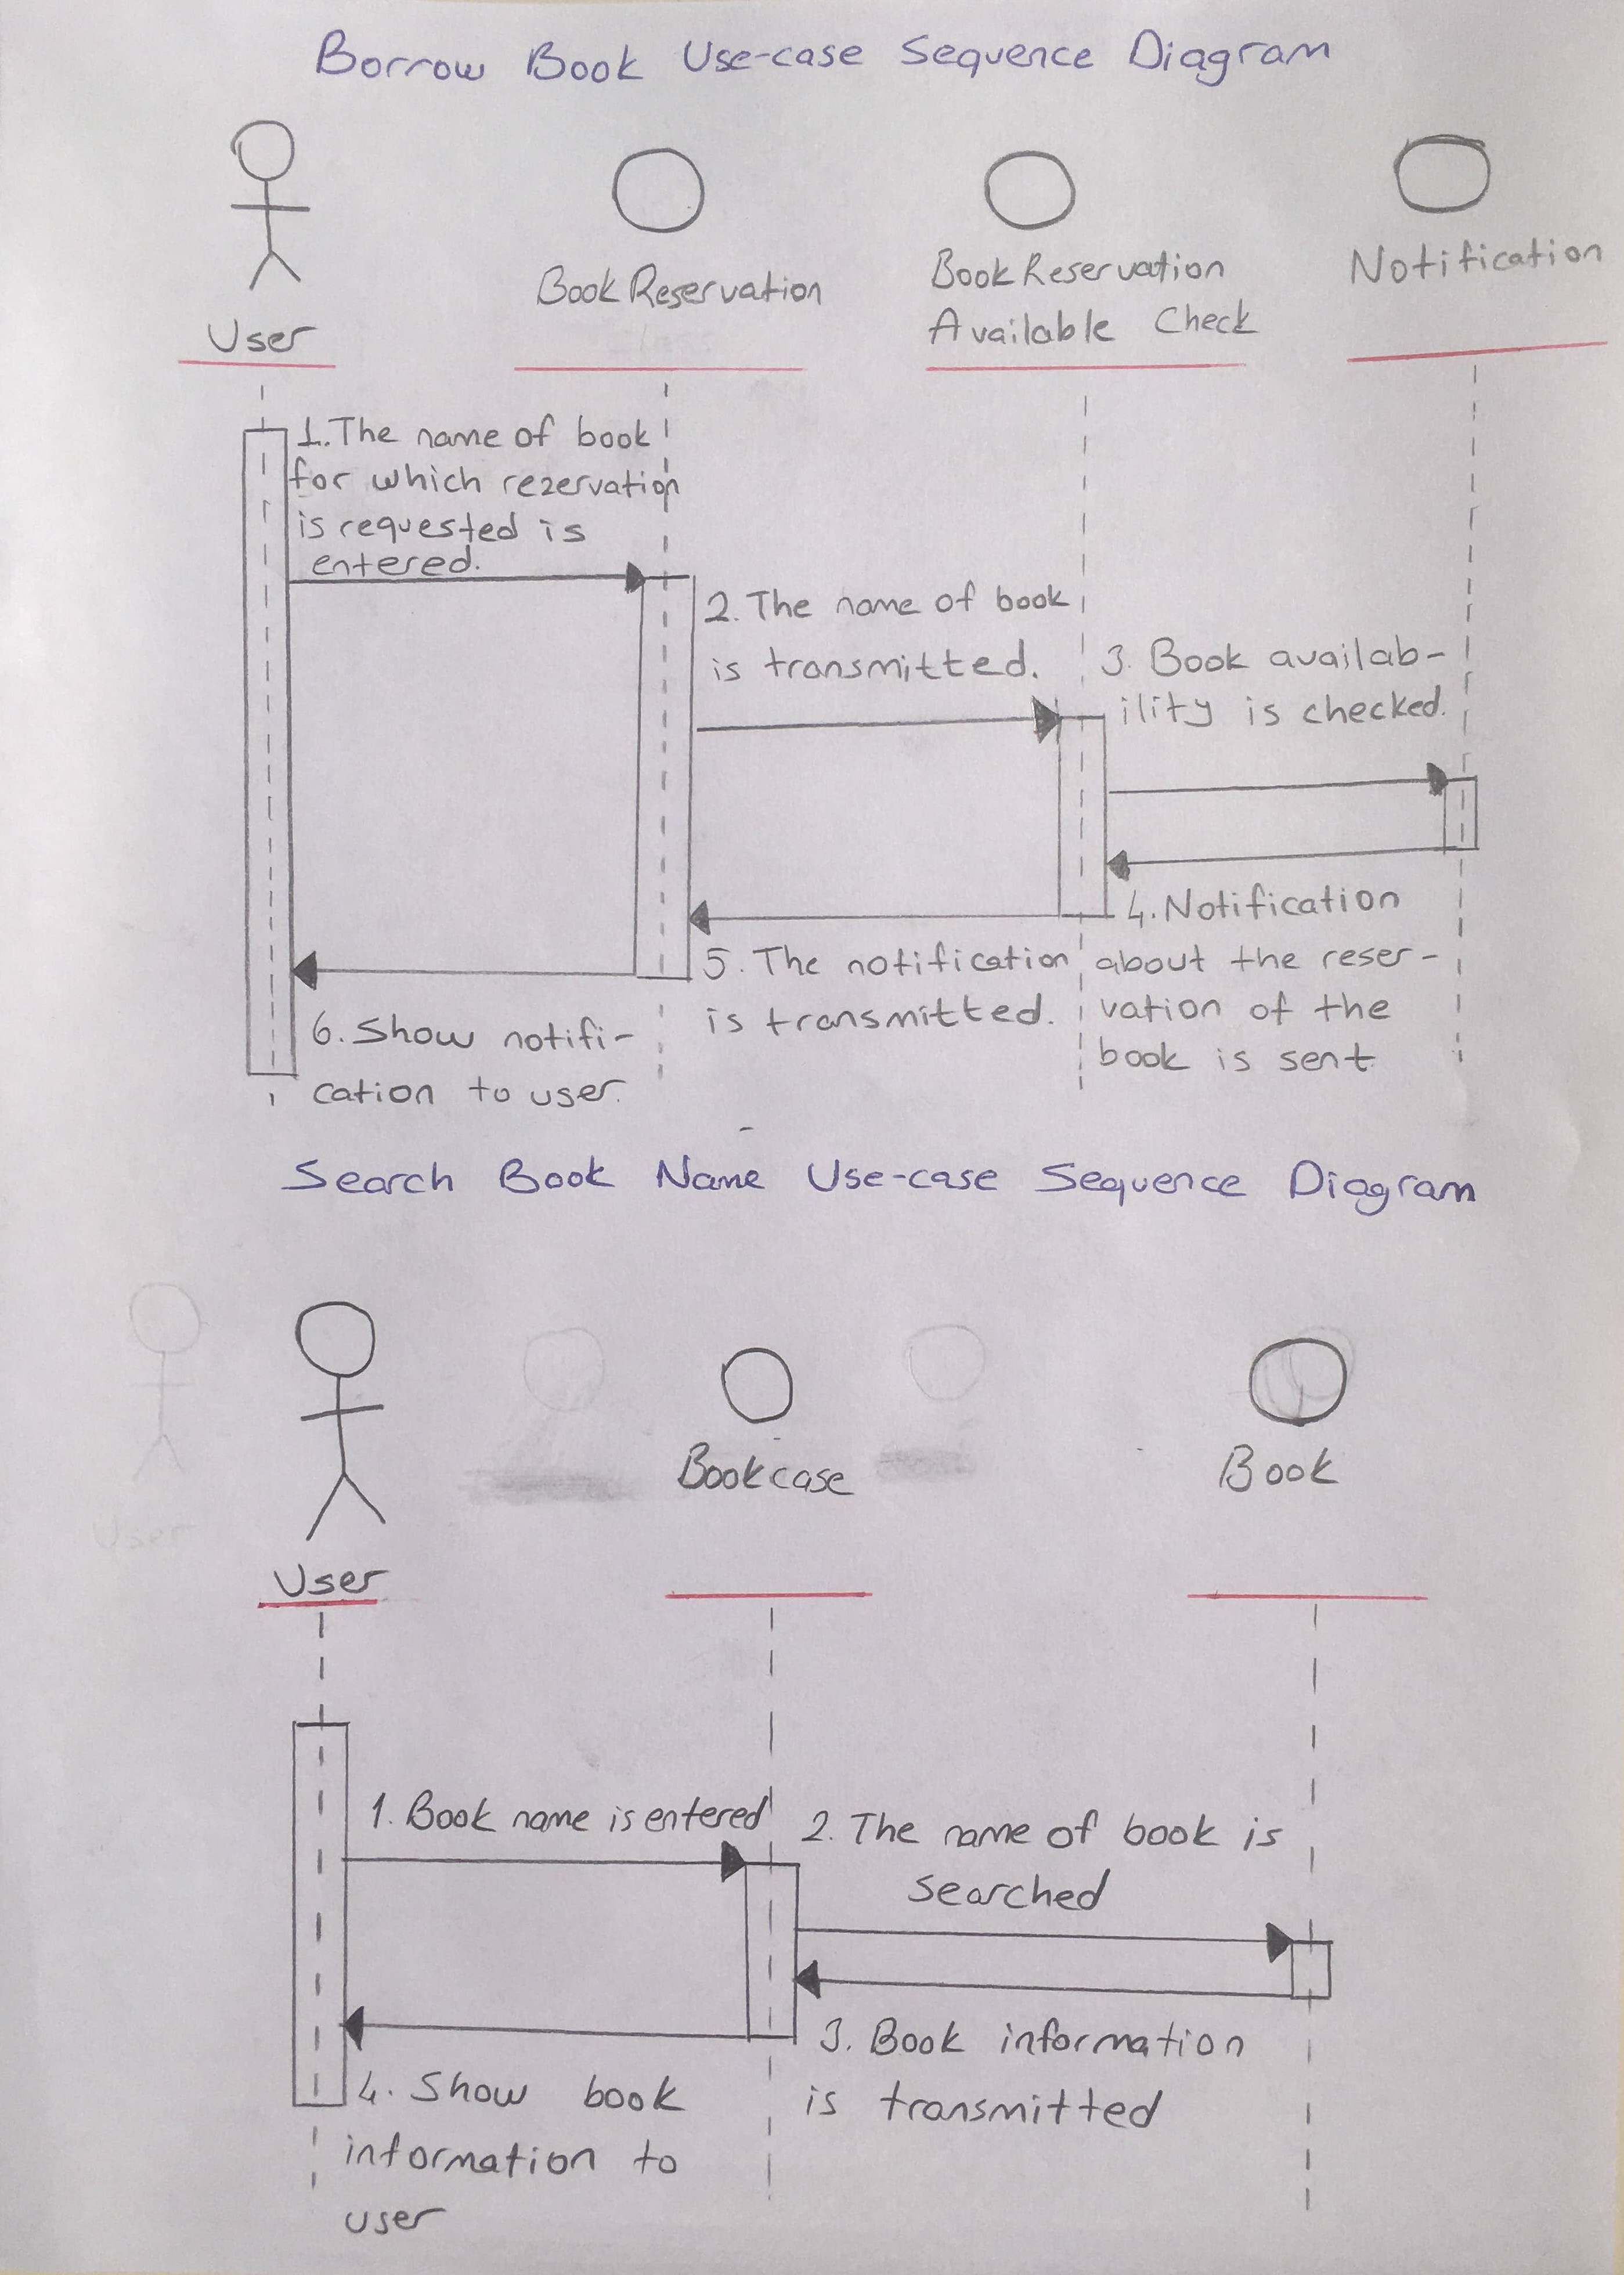 Borrow Book Use-case Sequence Diagram
User
Book Reservation
Book Reservation
Available Check
Notification
1. The name of book
for which rezervation
is requested is
entered.
2. The name of book
is transmitted.
3. Book availab-
ility is checked.
4. Notification
about the reser-
vation of the
book is sent
5. The notification
is transmitted.
6. Show notifi-
cation to user.
Search Book Name Use-case Sequence Diagram
User
User
Bookcase
Book
1. Book name is entered
2. The name of book is
searched
3. Book information
is transmitted
4. Show book
information to
user